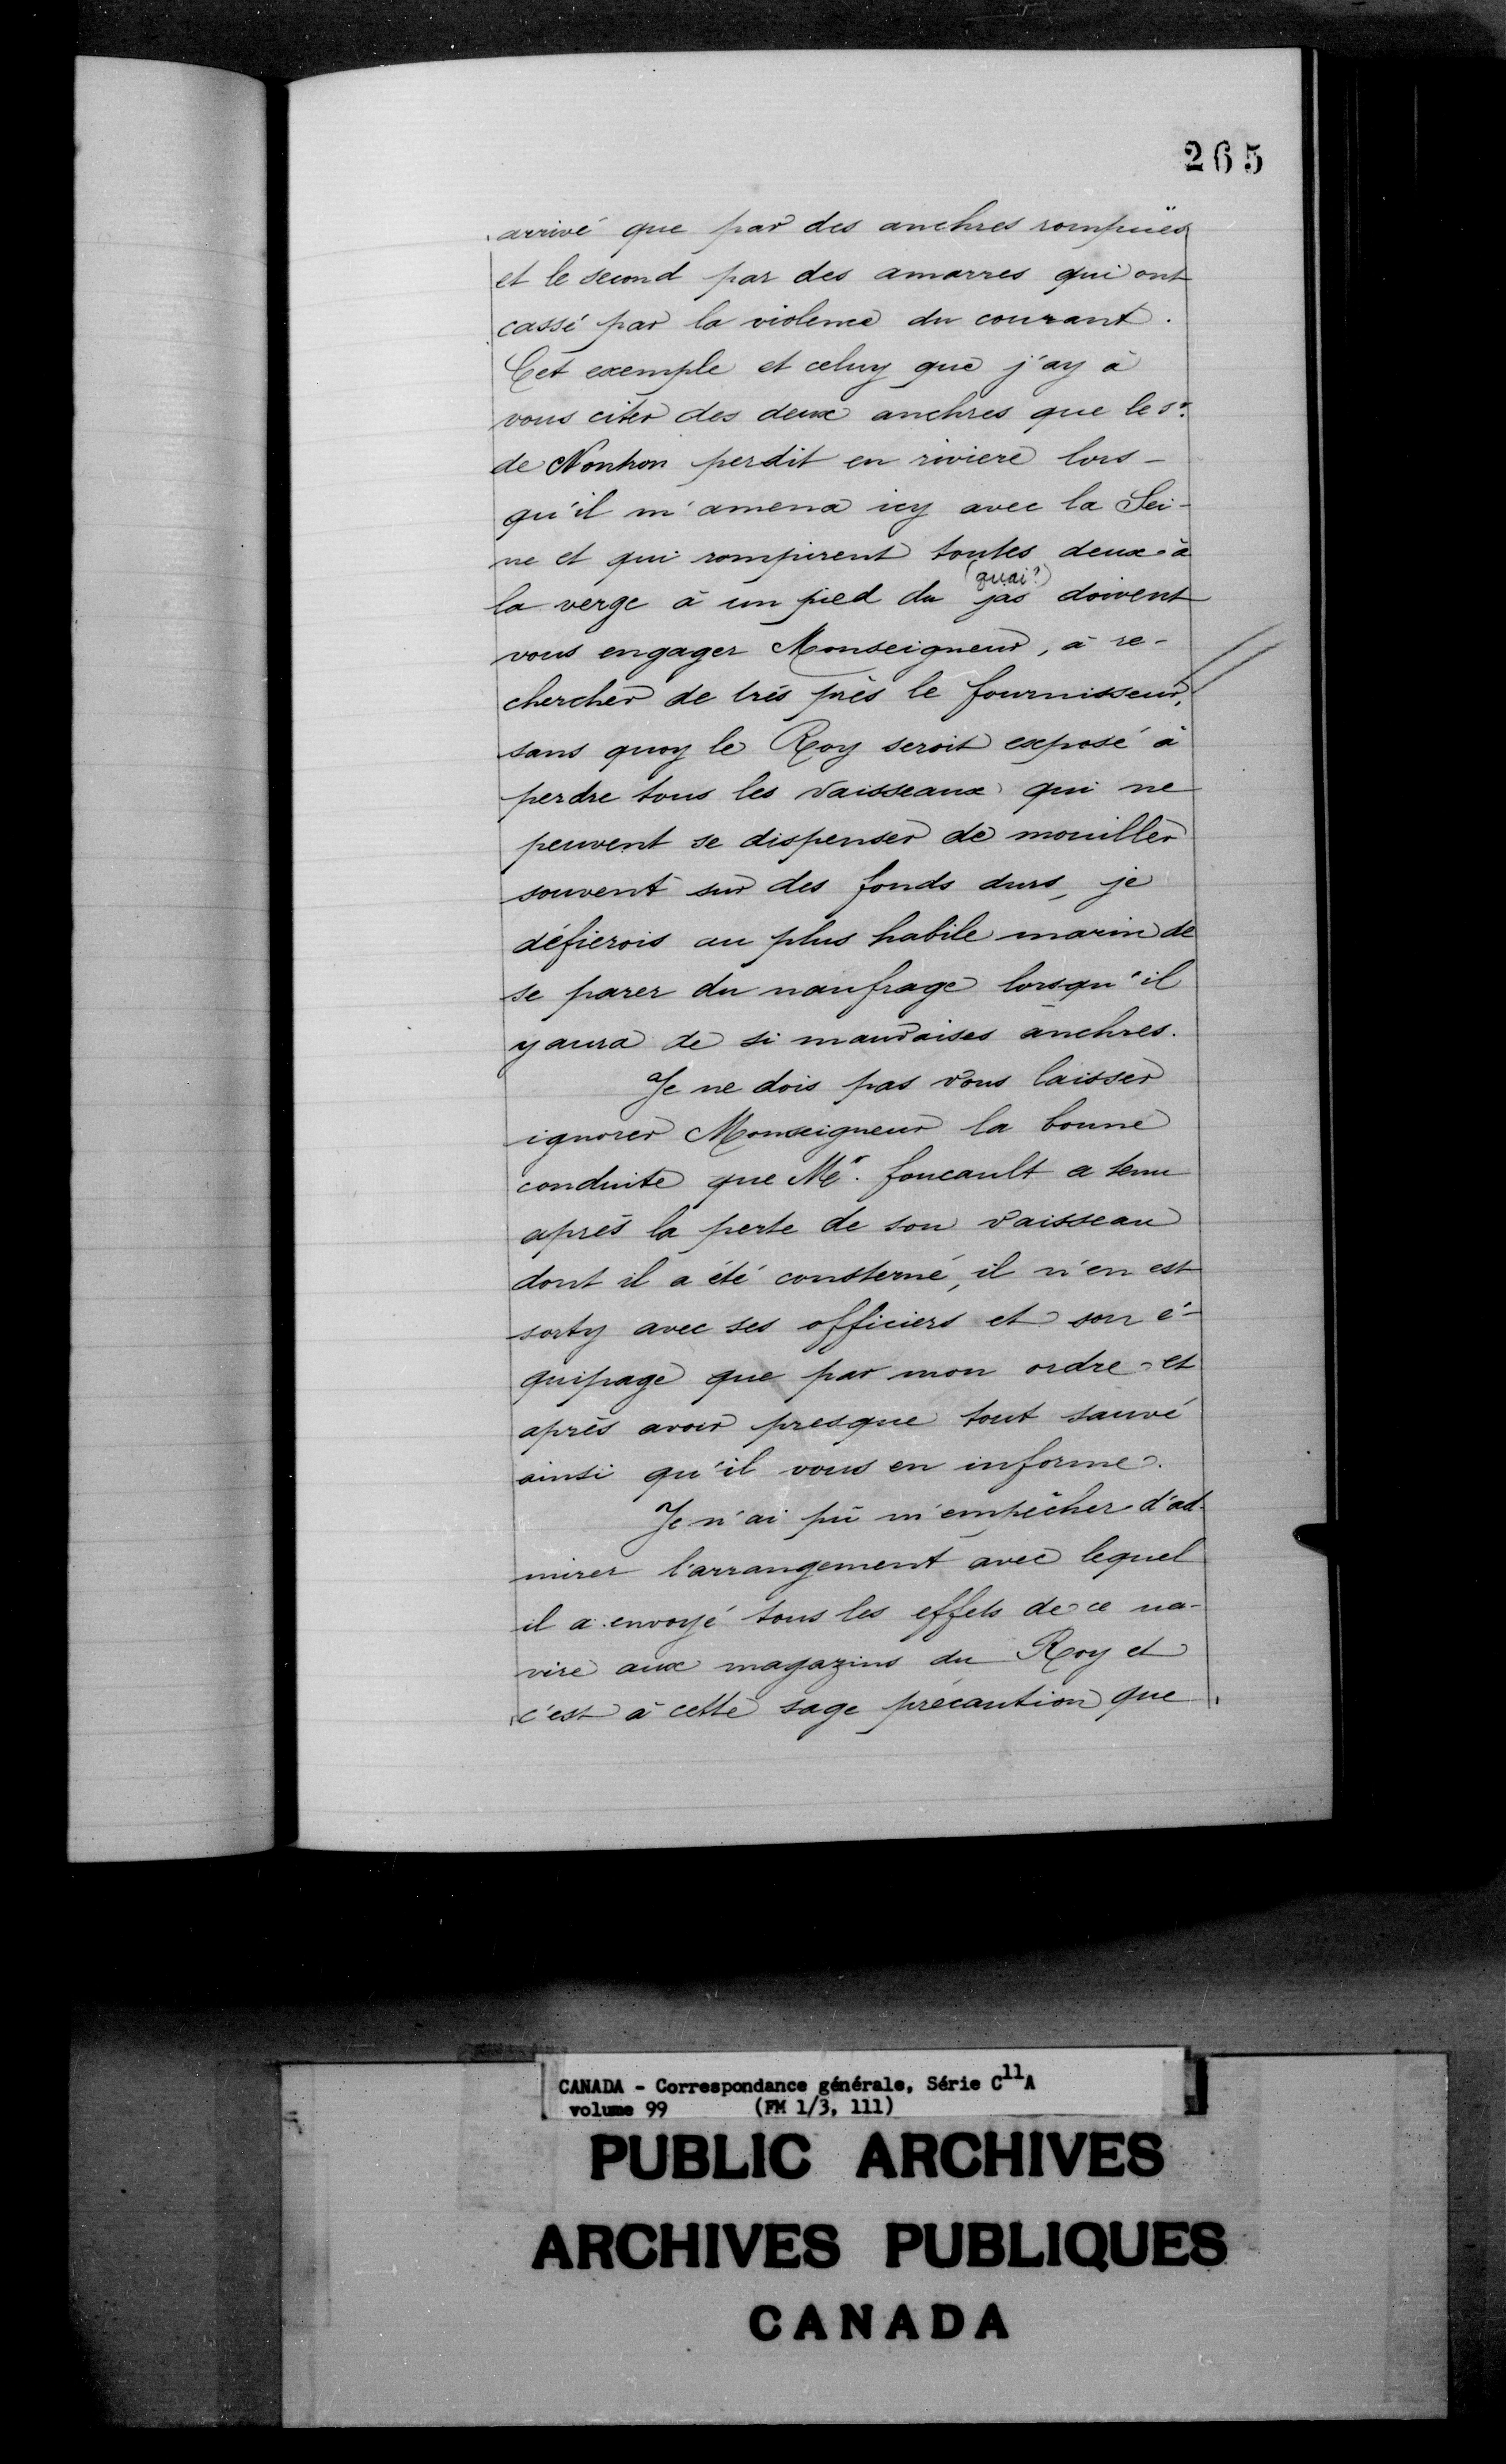 265
arrivé que par des anchres rompuës
et le second par des amarres qui ont
cassé par la violence du courant.
Cet exemple et celuy que j'ay à
vous citer des deux anchres que le Sr.
de Nontron perdit en riviere lors-
qu'il m'amena icy avec la Sei-
ne et qui rompirent toutes deux à
(quai?)
la verge à un pied du jas doivent
vous engager Monseigneur, à re-
chercher de très près le fournisseur,
sans quoy le Roy seroit exposé à
perdre tous les vaisseaux qui ne
peuvent se dispenser de mouiller
souvent sur des fonds durs, je
défierois au plus habile marin de
se parer du naufrage lorsqu'il
y aura de si mauvaises anchres.
Je ne dois pas vous laisser
ignorer Monseigneur la bonne
conduite que Mr. foucault a tenu
après la perte de son vaisseau
dont il a été consterné, il n'en est
sorty avec ses officiers et son é-
quipage que par mon ordre et
après avoir presque tout sauvé
ainsi qu'il vous en informe.
Je n'ai pû m'empêcher d'ad-
mirer l'arrangement avec lequel
il a envoyé tous les effets de ce na-
vire aux magazins du Roy et
c'est à cette sage précaution que
CANADA - Correspondance générale, Série C11A
volume 99 (FM 1/3, 111)
PUBLIC ARCHIVES
ARCHIVES PUBLIQUES
CANADA